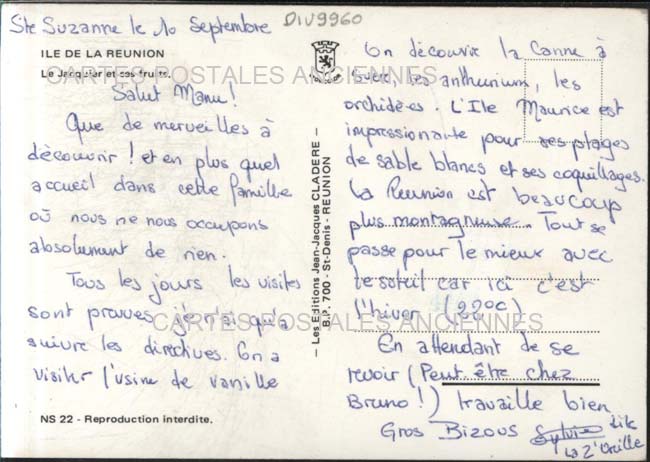 Ste Suzanne le 10 Septembre
DIV9960
ILE DE LA REUNION
Le Jacquier et ses fruits.
CARTES POSTALES ANCIENNES
Salut Manu!
Que de merveilles à
découvrir ! et en plus quel
accueil dans cette famille
où nous ne nous occupons
absolument de rien.
Tous les jours les visites
sont prévues, je n'ai qu'à
suivre les directives. On a
visiter l'usine de vanille
NS 22 - Reproduction interdite.
— Les Editions Jean-Jacques CLADERE —
B.P. 700 - St-Denis - REUNION
On découvre la Canne à
sucre, les anthurium, les
orchidées. L'Ile Maurice est
impressionante pour ses plages
de sable blancs et ses coquillages.
La Reunion est beaucoup
plus montagneuse. Tout se
passe pour le mieux avec
le soleil car ici c'est
l'hiver (22°C)
CARTES POSTALES ANCIENNES
En attendant de se
revoir (Peut être chez
Bruno!) travaille bien
Gros Bizous Sylvie